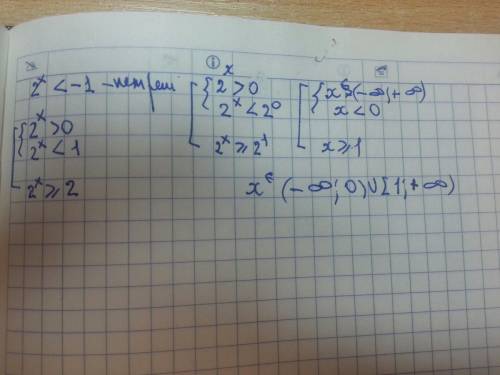 2ˣ < -1 - нет реш
{2ˣ > 0
2ˣ < 1
2ˣ ⩾ 2
①
{2ˣ > 0
2ˣ < 2⁰
2ˣ ⩾ 2¹
{x ∈ (-∞; +∞)
x < 0
x ⩾ 1
x ∈ (-∞; 0) ∪ [1; +∞)